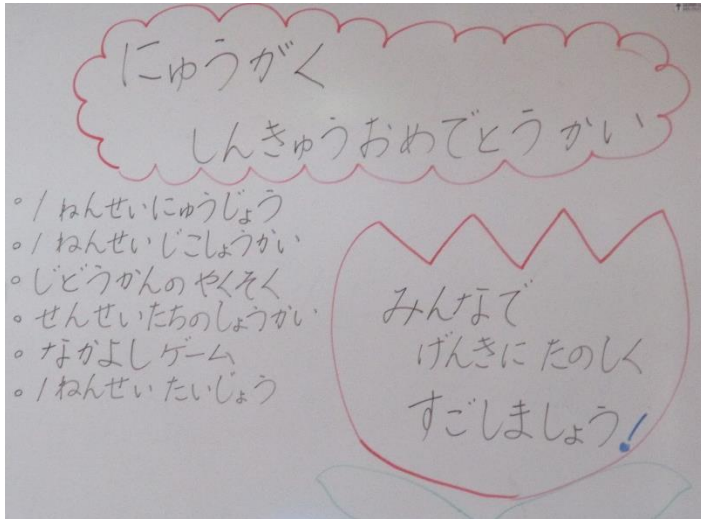 にゅうがく
しんきゅうおめでとうかい
。1ねんせいにゅうじょう
。1ねんせいじこしょうかい
。じどうかんのやくそく
。せんせいたちのしょうかい
。なかよしゲーム
。1ねんせいたいじょう
みんなで
げんきにたのしく
すごしましょう!